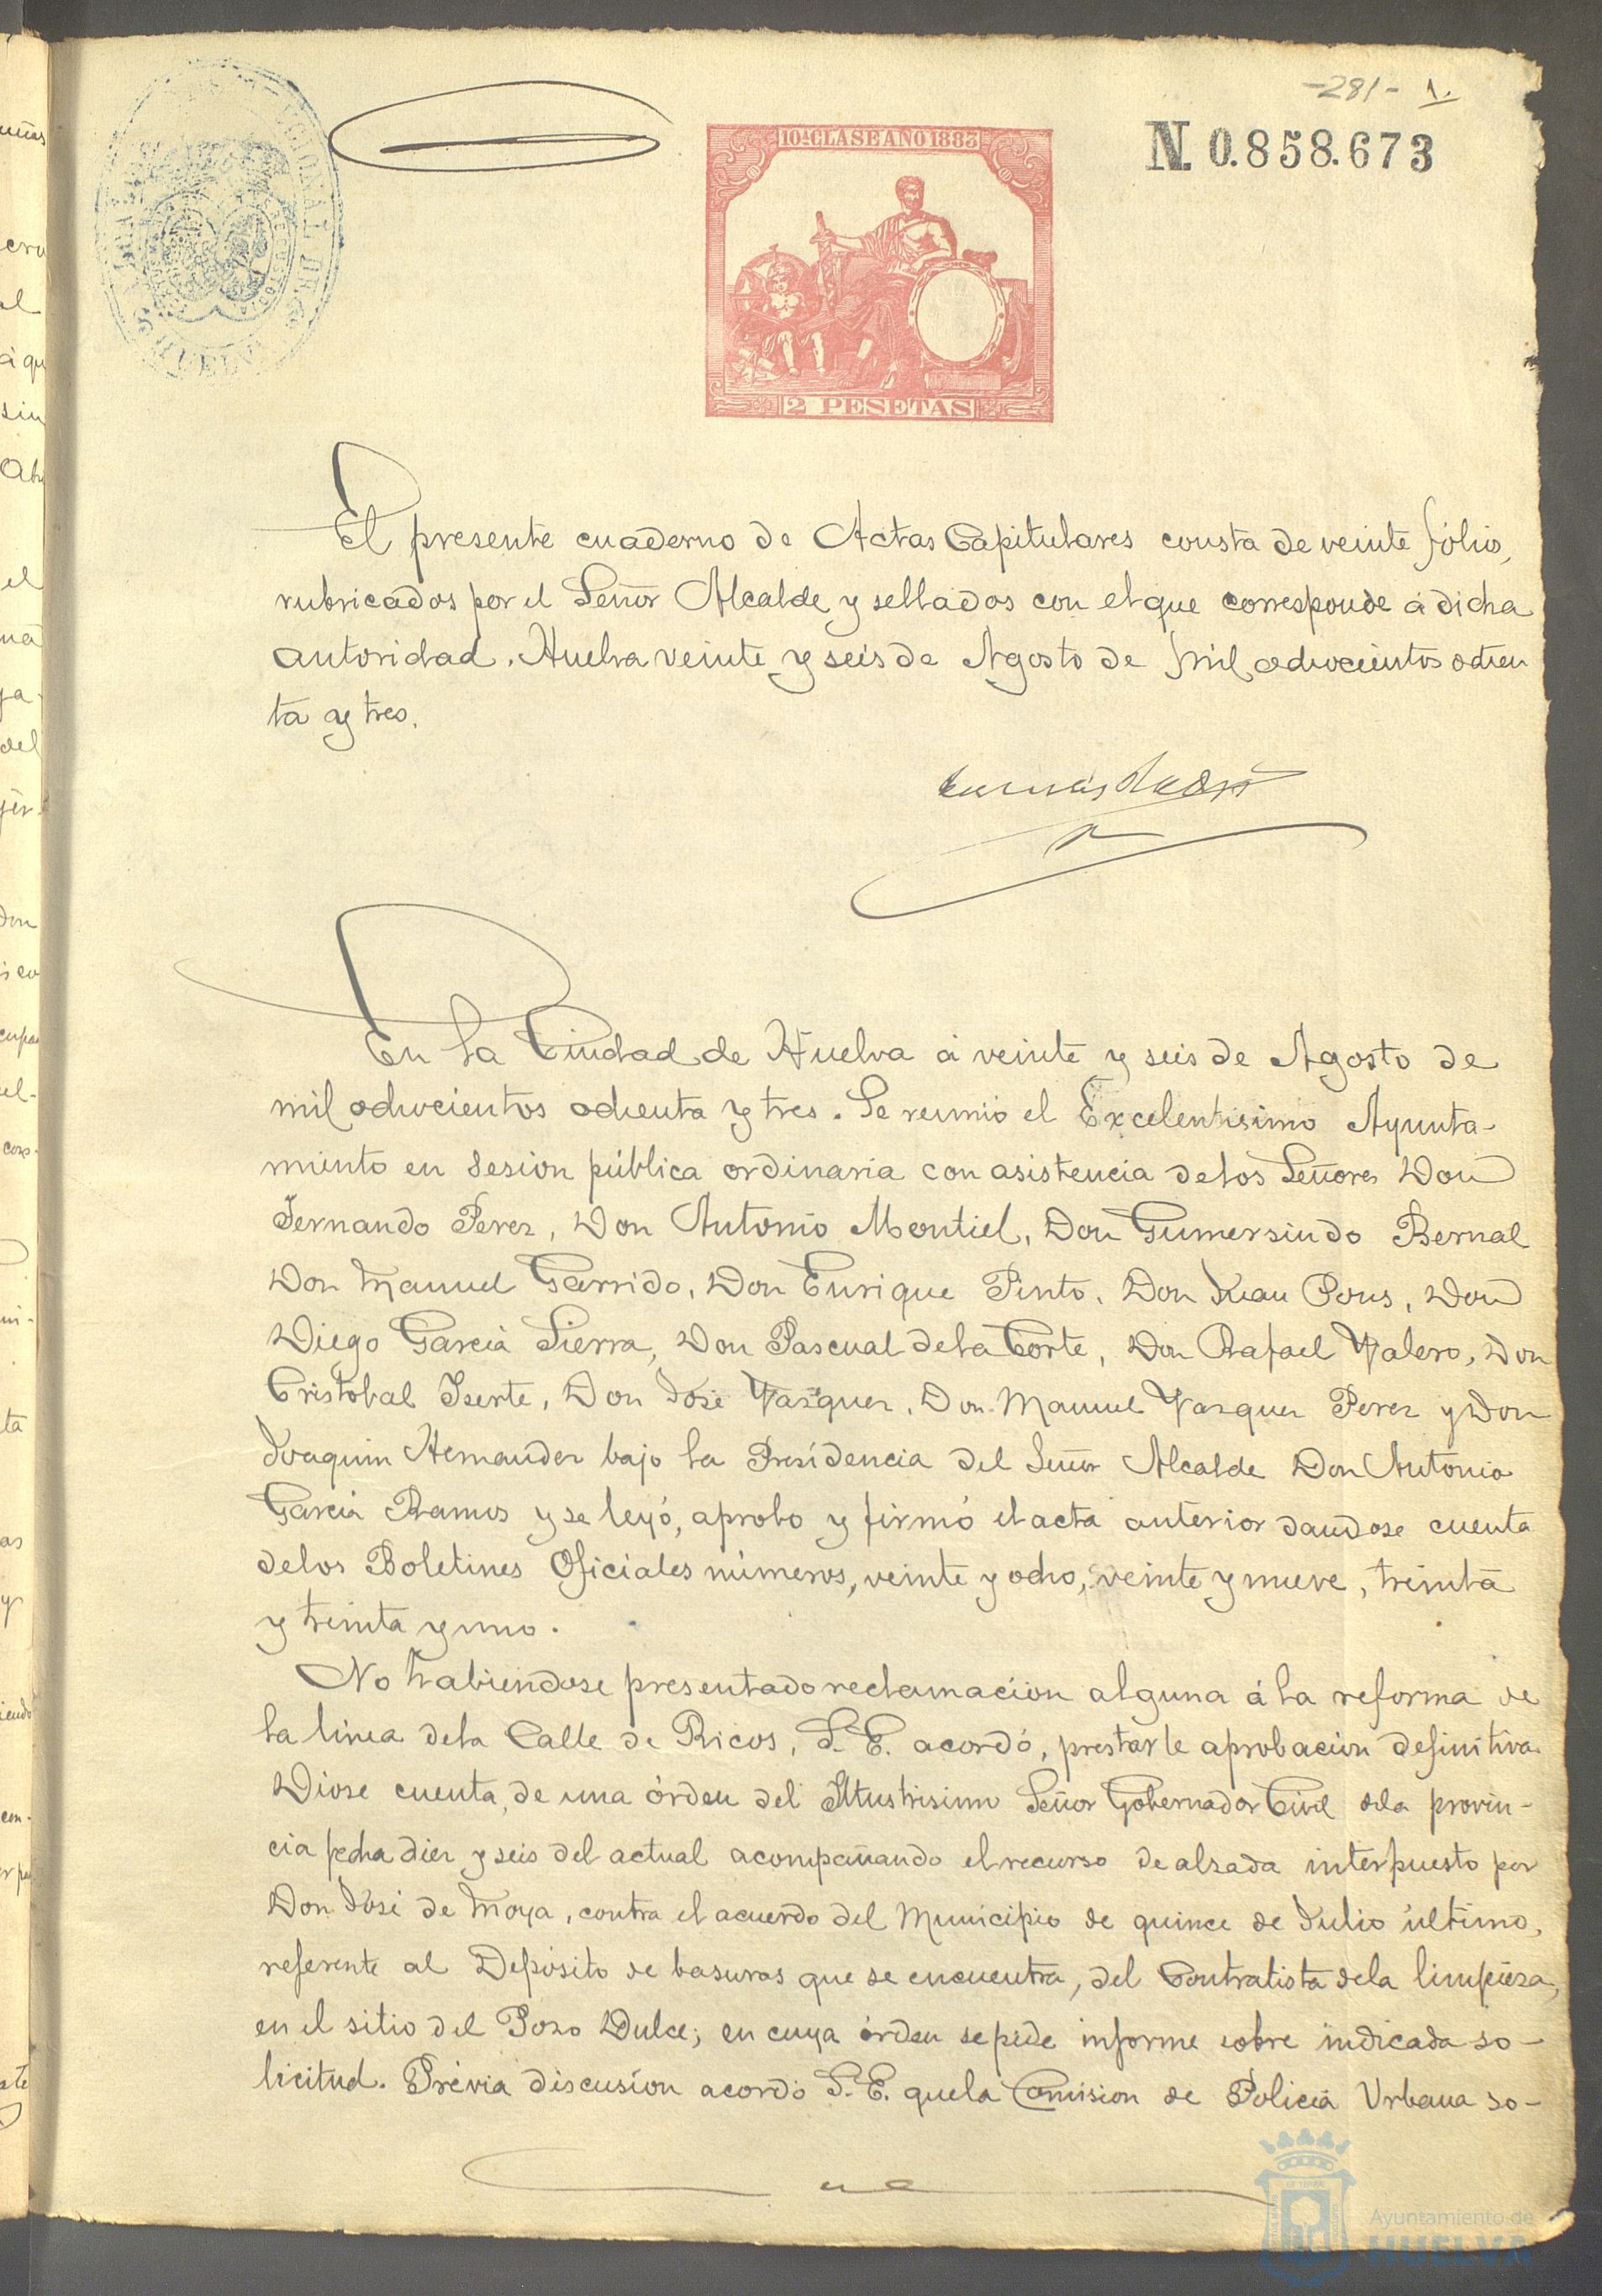 -281- 1.
10ª CLASE AÑO 1883
N. 0.858.673
2 PESETAS
El presente cuaderno de Actas Capitulares consta de veinte fólios,
rubricados por el Señor Alcalde y sellados con el que corresponde á dicha
autoridad. Huelva veinte y seis de Agosto de mil ochocientos ochen
ta y tres.
En la Ciudad de Huelva á veinte y seis de Agosto de
mil ochocientos ochenta y tres. Se reunió el Excelentisimo Ayunta-
miento en sesion pública ordinaria con asistencia de los Señores Don
Fernando Perez, Don Antonio Montiel, Don Gumersindo Bernal
Don Manuel Garrido, Don Enrique Pinto, Don Juan Pons, Don
Diego Garcia Sierra, Don Pascual de la Corte, Don Rafael Valero, Don
Cristobal Iserte, Don José Vazquez, Don Manuel Vazquez Perez y Don
Joaquin Hernandez bajo la Presidencia del Señor Alcalde Don Antonio
Garcia Ramos y se leyó, aprobo y firmó el acta anterior dandose cuenta
de los Boletines Oficiales números, veinte y ocho, veinte y nueve, treinta
y treinta y uno.
No habiendose presentado reclamacion alguna á la reforma de
la linea de la Calle de Ricos, S. E. acordó, prestarle aprobacion definitiva.
Diose cuenta, de una órden del Iltustrisimo Señor Gobernador Civil de la provin-
cia fecha diez y seis del actual acompañando el recurso de alzada interpuesto por
Don José de Moya, contra el acuerdo del Municipio de quince de Julio último,
referente al Depósito de basuras que se encuentra, del Contratista de la limpieza,
en el sitio del Pozo Dulce; en cuya órden se pide informe sobre indicada so-
licitud. Prévia discusion acordó S. E. que la Comision de Policia Urbana so-
Ayuntamiento de
HUELVA